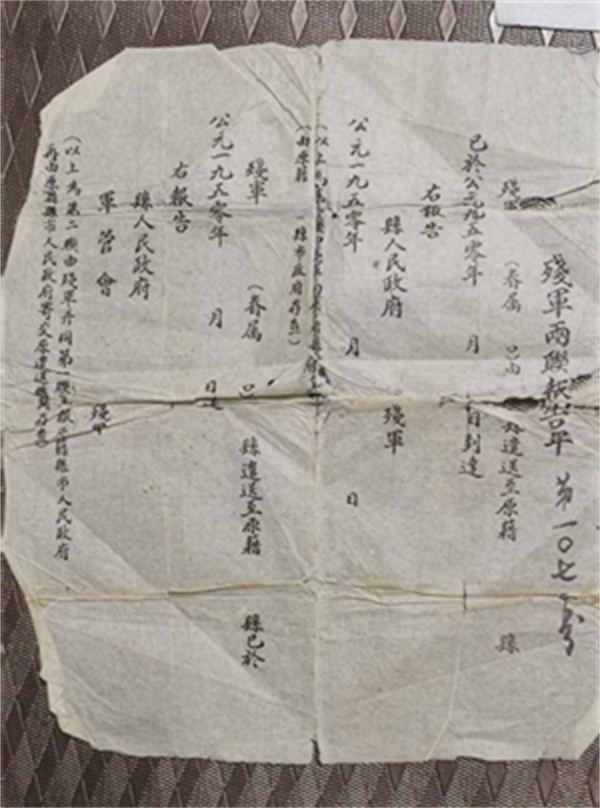 殘軍兩聯報告單 第一〇七號
殘軍 (眷属 已由 縣遣送至原籍 縣
已於公元一九五零年 月 日到達
右報告
縣人民政府 殘軍
公元一九五零年 月 日
(由原籍 縣市政府存查)
殘軍 (眷属 已 縣遣送至原籍 縣已於
公元一九五零年 月 日
右報告
縣人民政府
軍管會 殘軍
(以上為第二聯由殘軍并同第一聯 縣市人民政府
再由原籍縣市人民政府寄交原遣送機關存查)